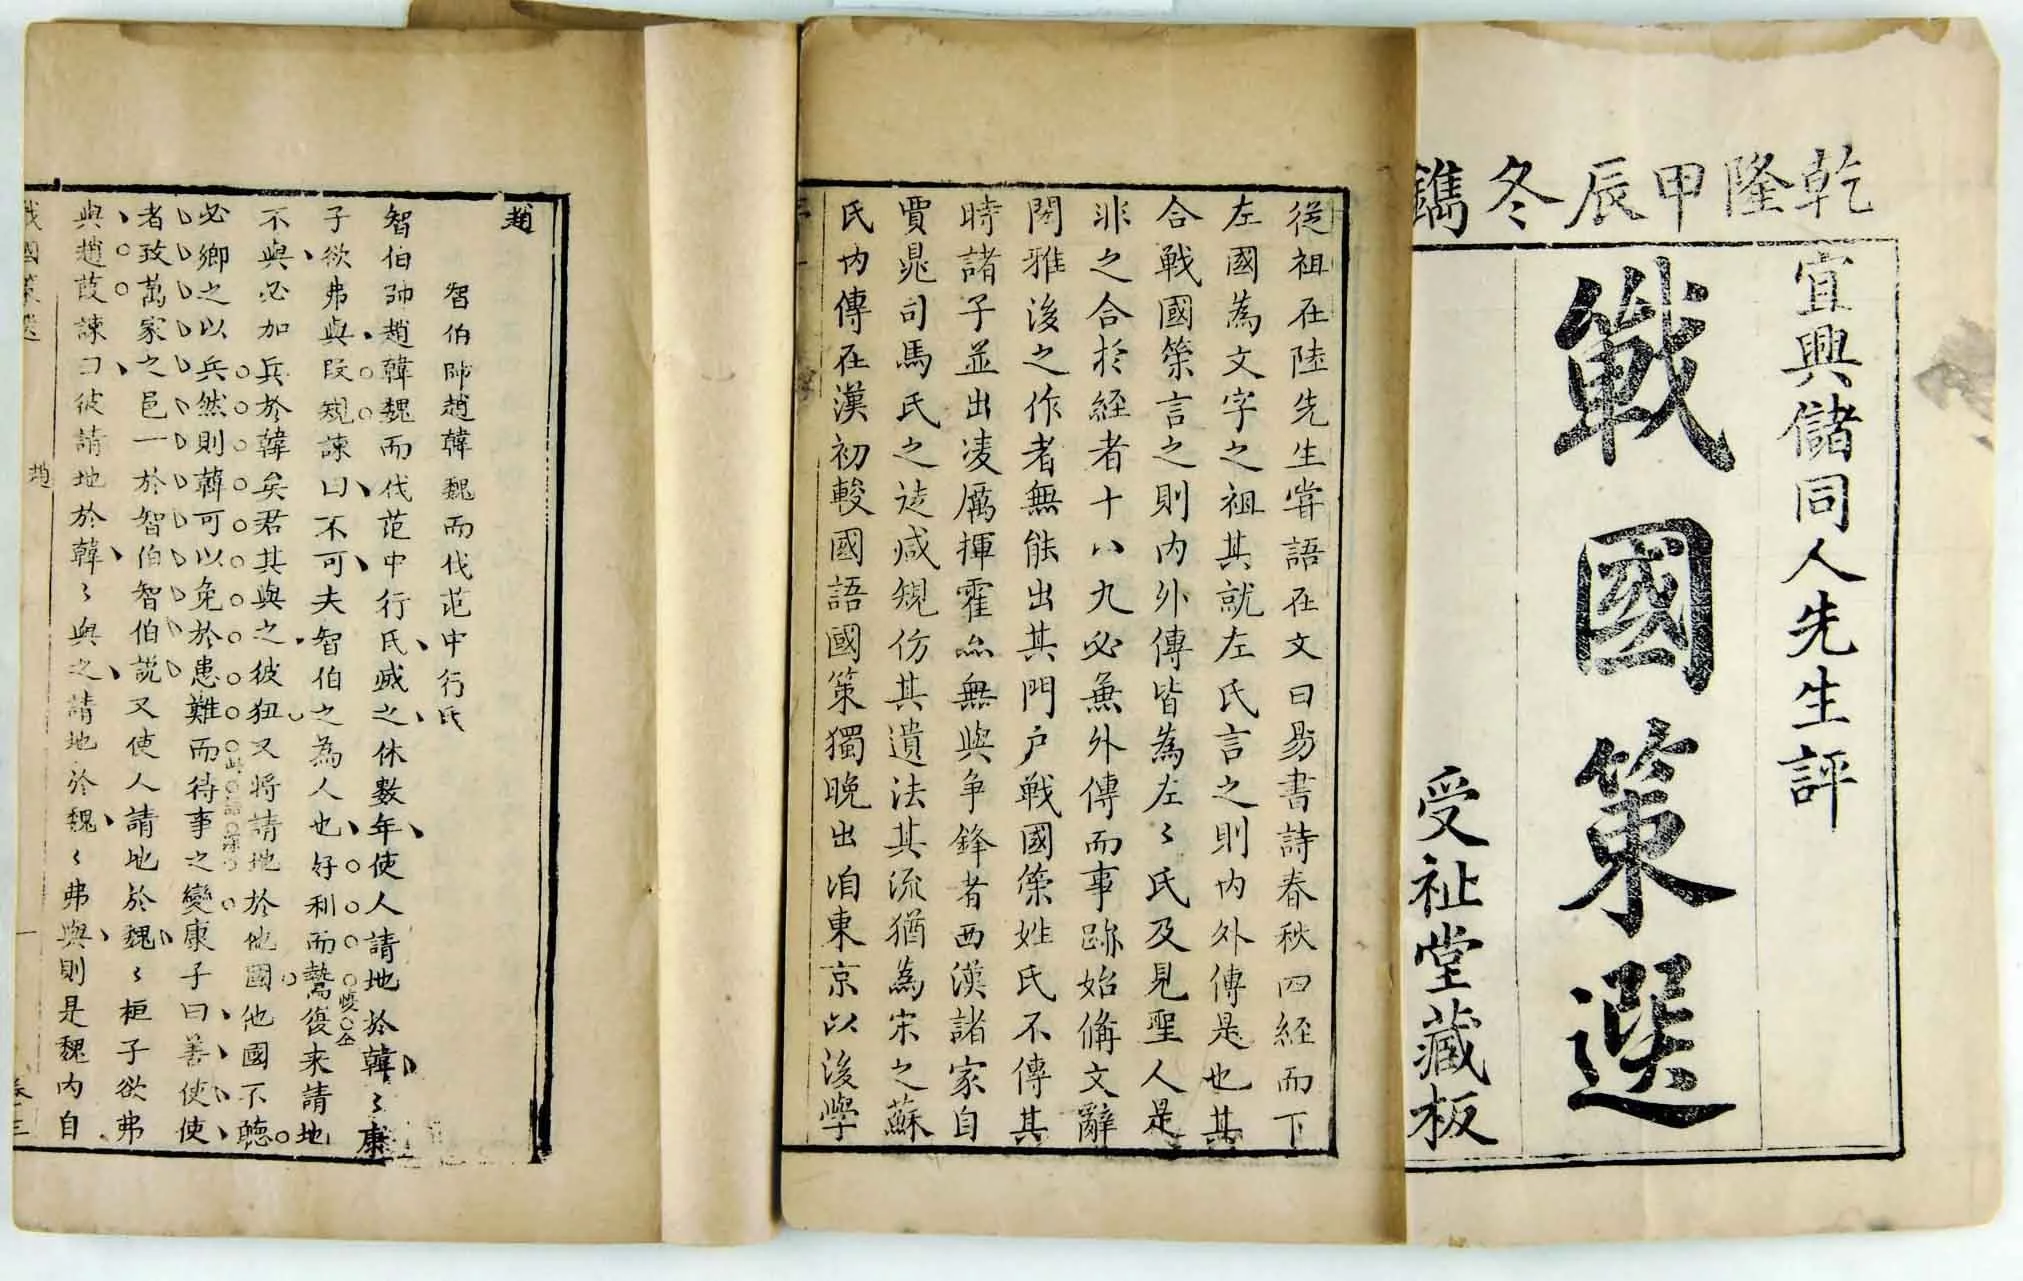 乾隆甲辰冬鐫
宜興儲同人先生評
戰國策選
受祉堂藏板
從祖在陸先生嘗語在文曰易書詩春秋四経而下
左國為文字之祖其就左氏言之則內外傳是也其
合戰國策言之則內外傳皆為左〻氏及見聖人是
非之合扵経者十八九必無外傳而事跡始備文辭
閎雅後之作者無能出其門户戰國策姓氏不傳其
時諸子並出凌厲揮霍無與争鋒者西漢諸家自
賈晁司馬氏之徒咸規仿其遺法其流猶為宋之蘇
氏內傳在漢初較國語國策獨晚出洎東京以後學
趙
智伯帥趙韓魏而伐范中行氏
智伯帥趙韓魏而伐范中行氏滅之休數年使人請地於韓〻康
子欲弗與段規諫曰不可夫智伯之為人也好利而鷙復來請地
不與必加兵於韓矣君其與之彼狃又將請地於他國他國不聽
必鄉之以兵然則韓可以免於患難而待事之變康子曰善使使
者致萬家之邑一於智伯智伯說又使人請地於魏〻桓子欲弗
與趙葭諫曰彼請地於韓〻與之請地於魏〻弗與則是魏內自
戰國策選
趙
一
卷三